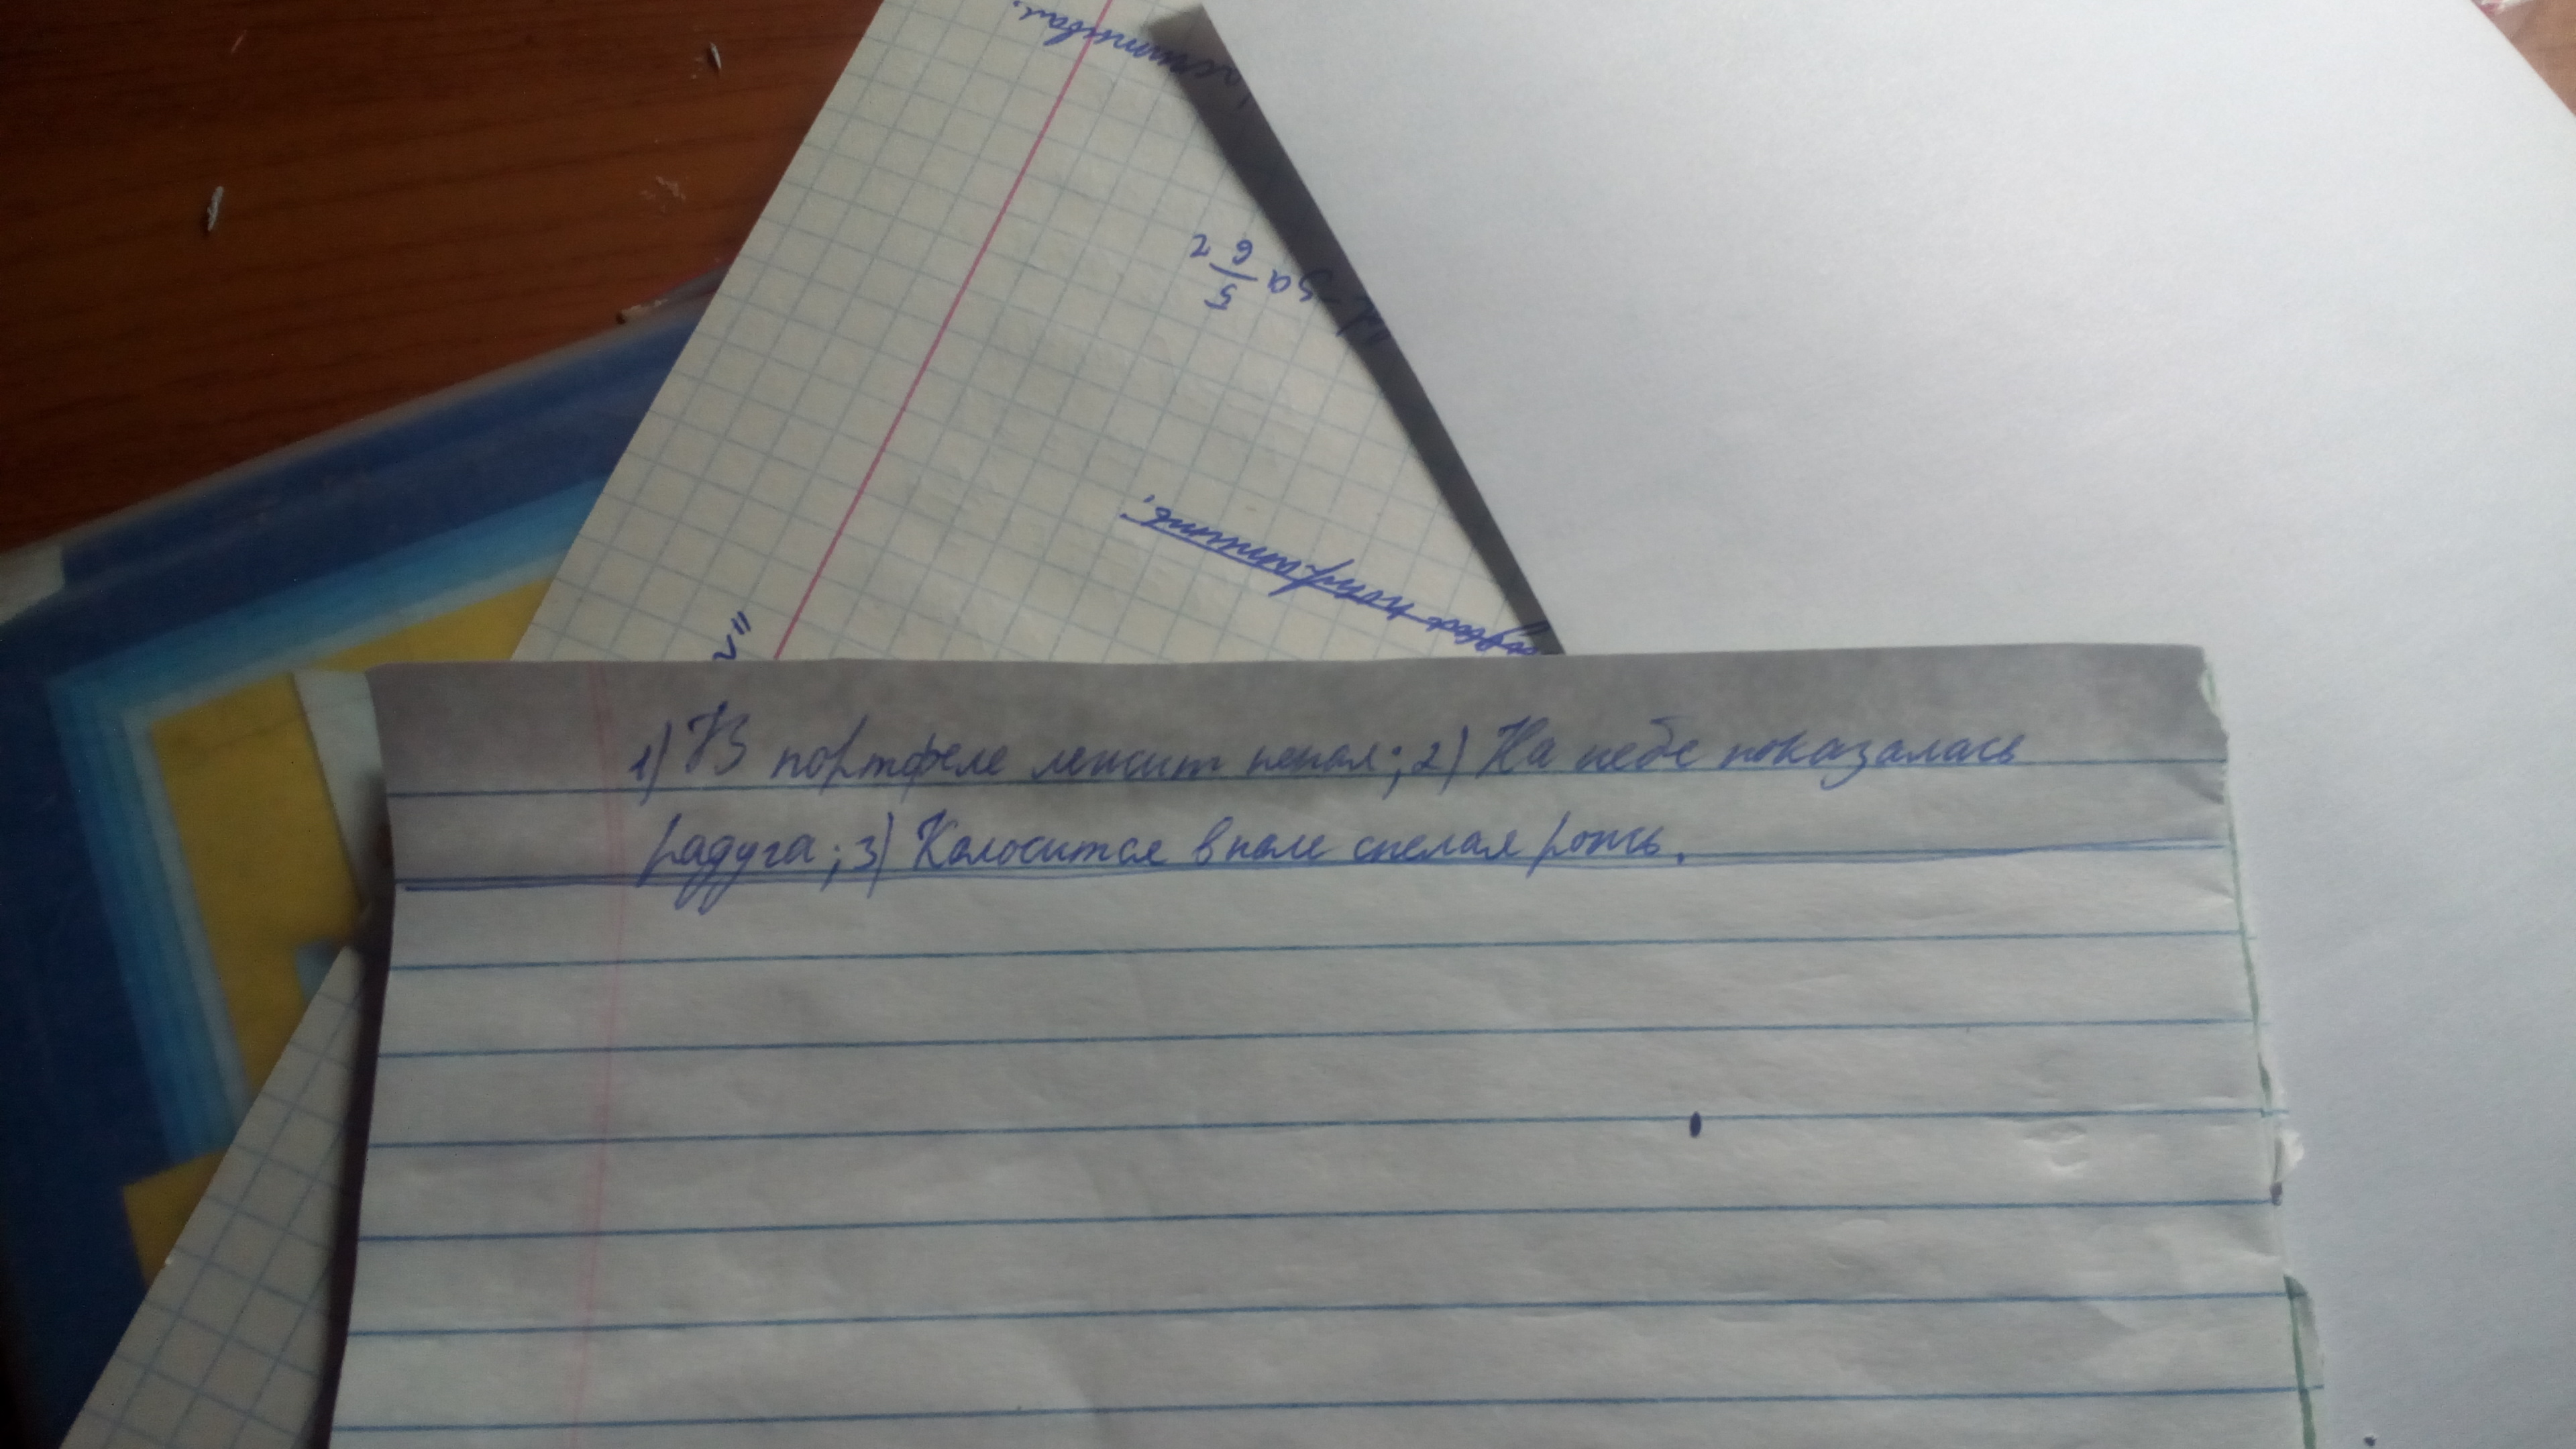 1) В портфеле лежит пенал; 2) На небе показалась
радуга; 3) Колосится в поле спелая рожь.
за 5/6 г